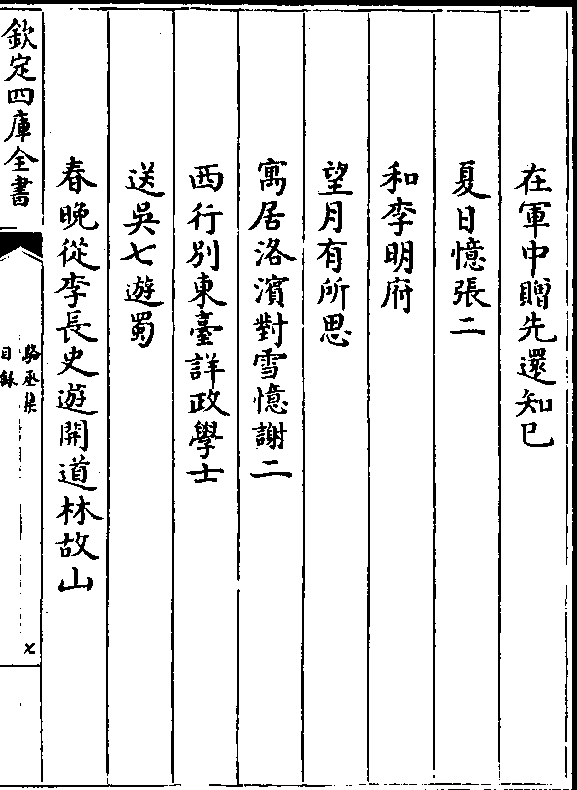 在軍中贈先還知己
夏日憶張二
和李明府
望月有所思
寓居洛濱對雪憶謝二
西行别東臺詳政學士
送吳七遊蜀
春晚從李長史遊開道林故山
欽定四庫全書
駱丞集
目録
七